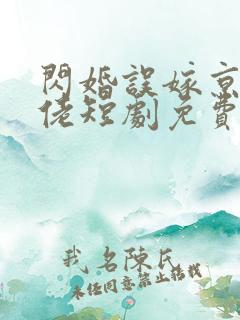 閃婚誤嫁京
佬短劇免費
我名陳氏
未經同意禁止搭載